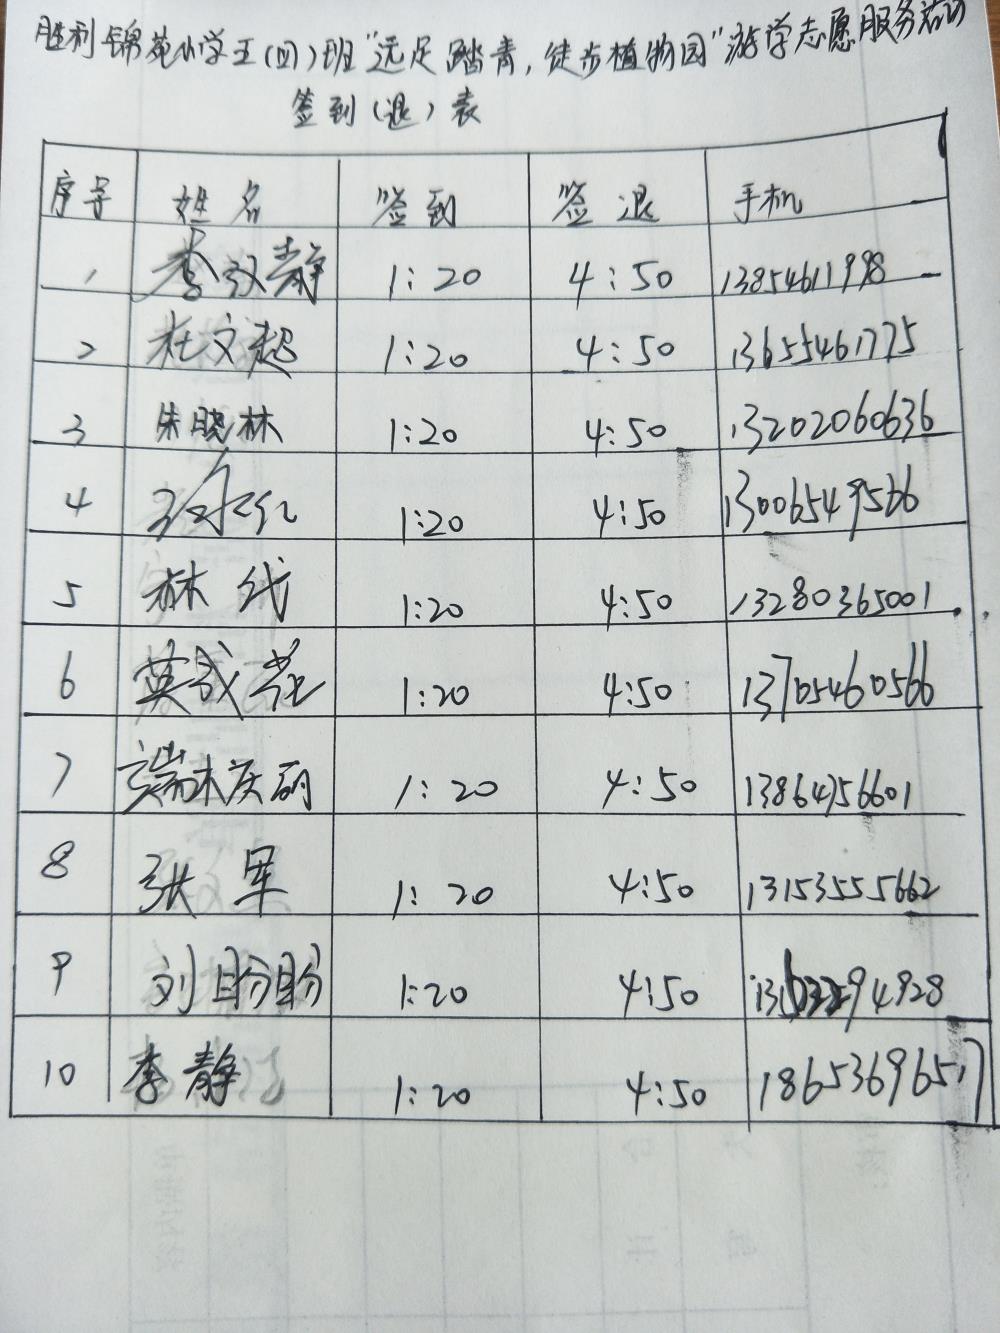 胜利锦苑小学五(四)班"远足踏青,徒步植物园"游学志愿服务活动
签到(退)表
序号 姓名 签到 签退 手机
1 李汉静 1:20 4:50 13854611998
2 杜文超 1:20 4:50 13655461775
3 朱晓林 1:20 4:50 13202060636
4 1:20 4:50 13006549566
5 林 1:20 4:50 13280365001
6 1:20 4:50 13705460566
7 端木庆 1:20 4:50 13864756601
8 张军 1:20 4:50 13153555662
9 刘盼盼 1:20 4:50
10 李静 1:20 4:50 18653696517